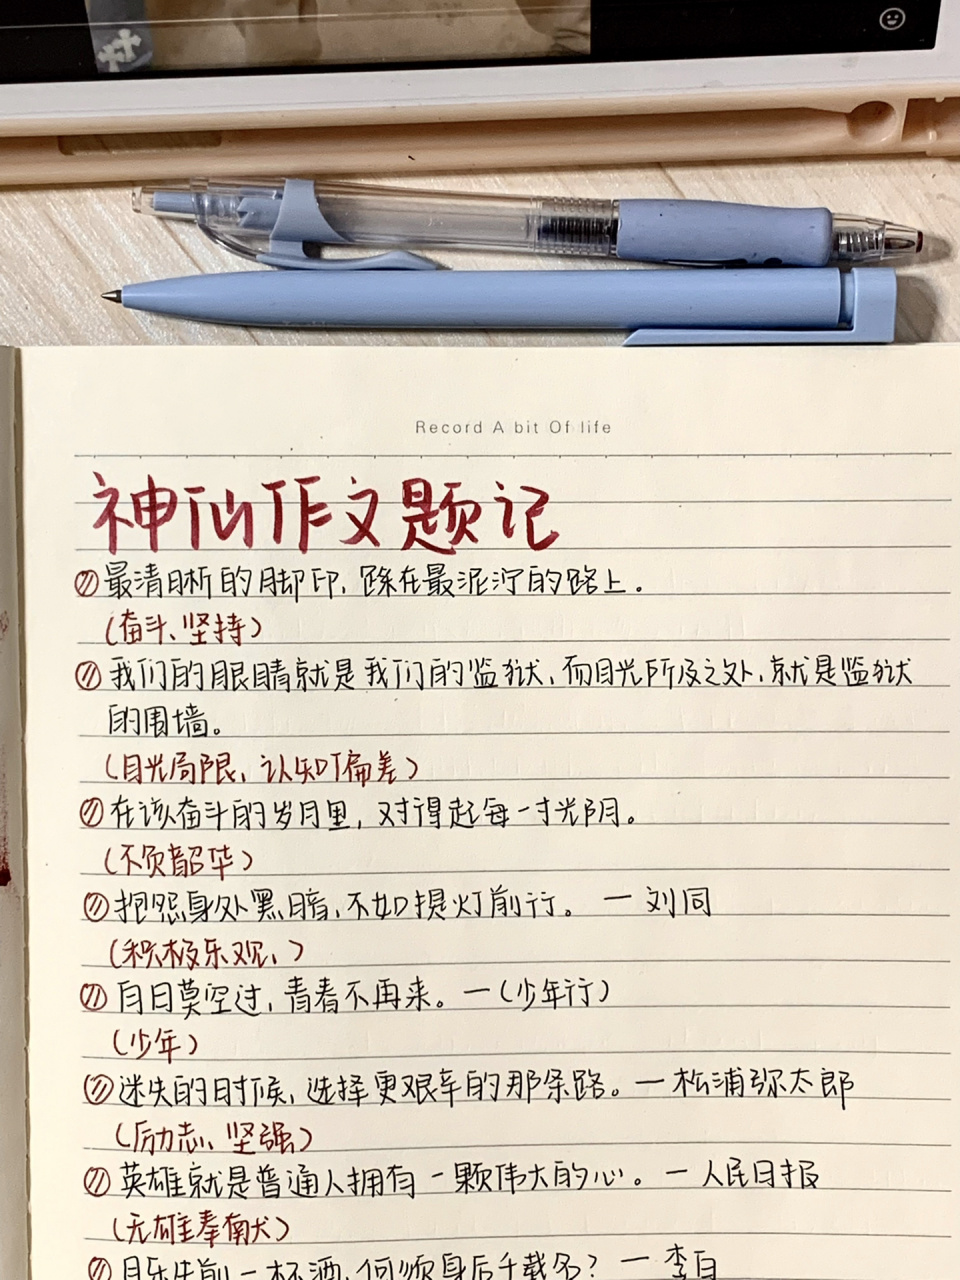 Record A bit Of life
神仙作文题记
最清晰的脚印，踩在最泥泞的路上。
（奋斗、坚持）
我们的眼睛就是我们的监狱，而目光所及之处，就是监狱
的围墙。
（目光局限、认知偏差）
在该奋斗的岁月里，对得起每一寸光阴。
（不负韶华）
抱怨身处黑暗，不如提灯前行。—刘同
（积极乐观、）
白日莫空过，青春不再来。—（少年行）
（少年）
迷失的时候，选择更艰辛的那条路。—松浦弥太郎
（励志、坚强）
英雄就是普通人拥有一颗伟大的心。—人民日报
（无雄奉献）
且乐生前一杯酒，何须身后千载名？—李白